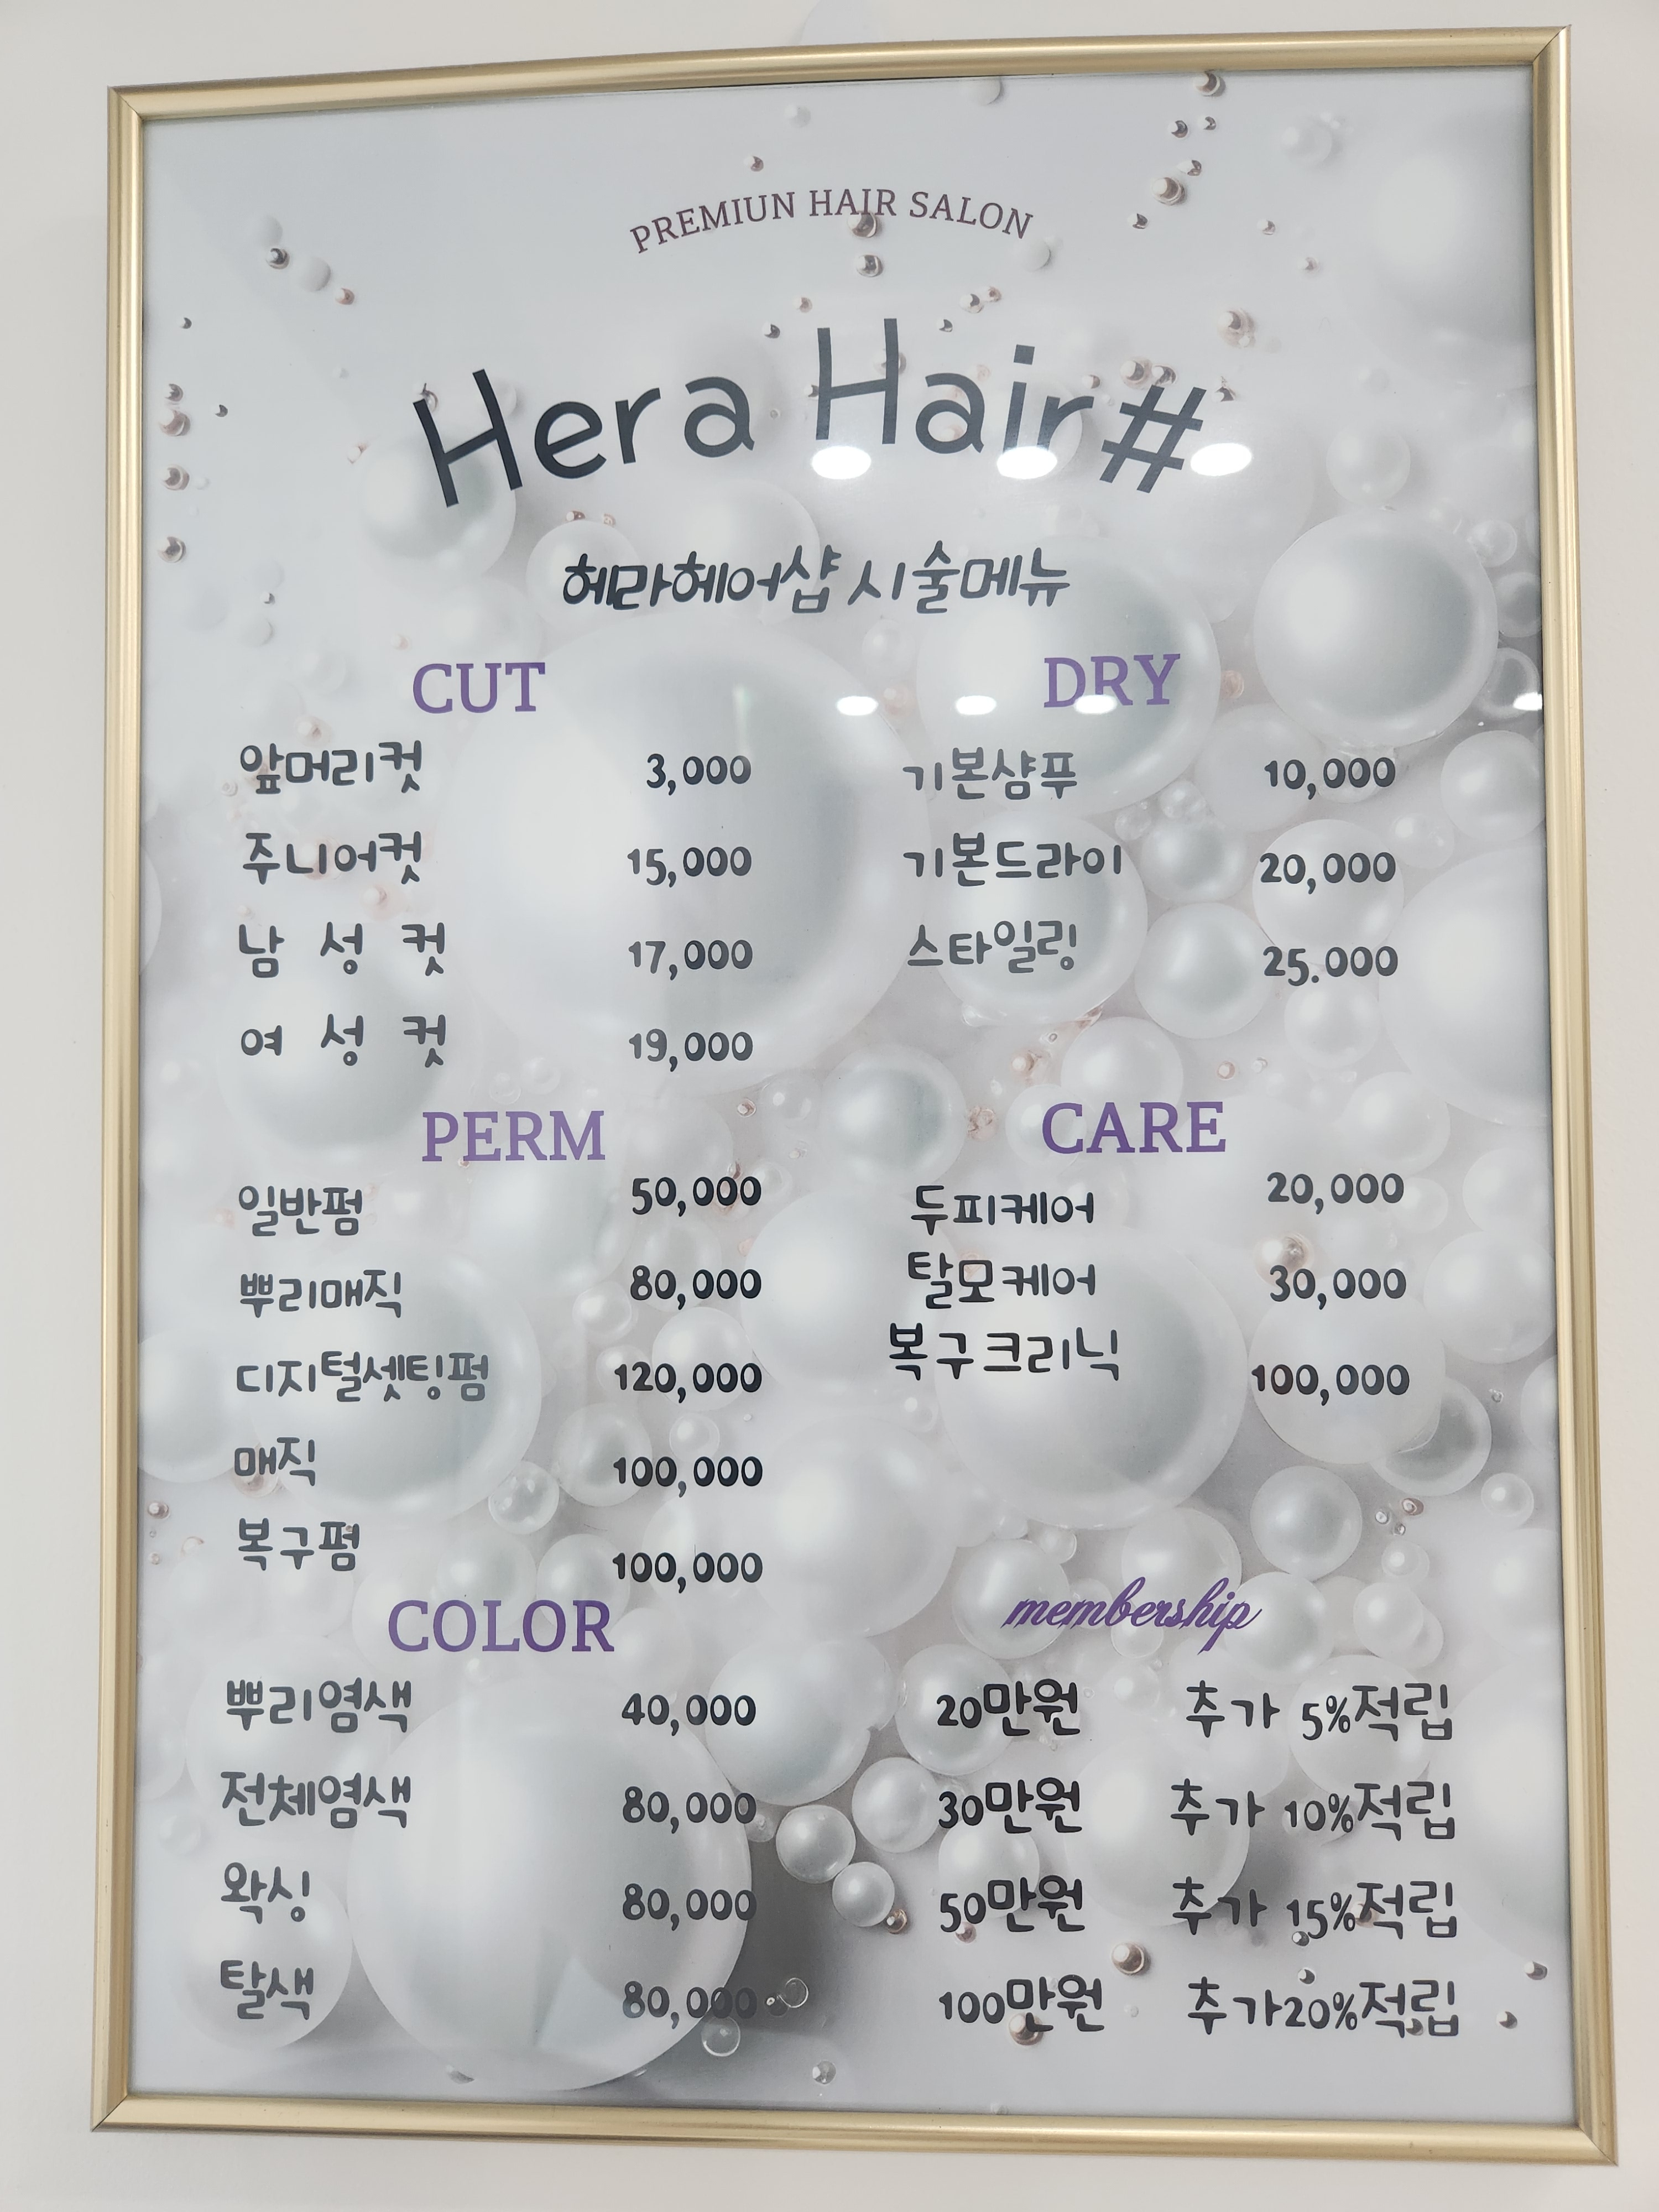 PREMIUN HAIR SALON
Hera Hair#
헤라헤어샵 시술메뉴
CUT
앞머리컷 3,000
주니어컷 15,000
남 성 컷 17,000
여 성 컷 19,000
DRY
기본샴푸 10,000
기본드라이 20,000
스타일링 25.000
PERM
일반펌 50,000
뿌리매직 80,000
디지털셋팅펌 120,000
매직 100,000
복구펌 100,000
CARE
두피케어 20,000
탈모케어 30,000
복구크리닉 100,000
COLOR
뿌리염색 40,000
전체염색 80,000
왁싱 80,000
탈색 80,000
membership
20만원 추가 5%적립
30만원 추가 10%적립
50만원 추가 15%적립
100만원 추가20%적립